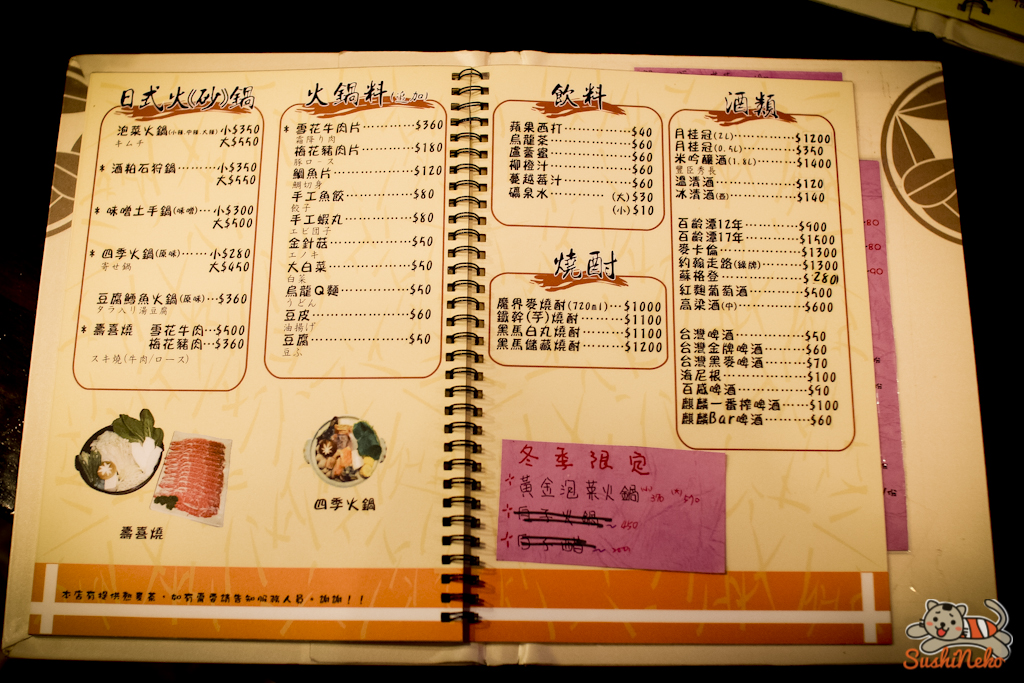 日式火(砂)鍋
泡菜火鍋(小辣.中辣.大辣) 小$350
キムチ 大$550
* 酒粕石狩鍋····小$350
大$550
* 味噌土手鍋(味噌)···小$300
大$500
* 四季火鍋(原味)···小$280
寄せ鍋 大$450
豆腐鱈魚火鍋(原味)··$360
タラ入り湯豆腐
* 壽喜燒 雪花牛肉··$500
梅花豬肉··$360
スキ燒(牛肉/ロース)
壽喜燒
火鍋料(追加)
* 雪花牛肉片··········$360
霜降り肉
梅花豬肉片··········$180
豚ロース
鯛魚片··············$120
鯛切身
手工魚餃············$80
餃子
手工蝦丸············$80
エビ団子
金針菇··············$50
エノキ
大白菜··············$50
白菜
烏龍Q麵············$50
うどん
豆皮················$60
油揚げ
豆腐················$50
豆ふ
四季火鍋
本店有提供熱麥茶，如有需要請告知服務人員。謝謝！！
飲料
蘋果西打··············$40
烏龍茶················$60
蘆薈蜜················$60
柳橙汁················$60
蔓越莓汁··············$60
礦泉水··········(大)$30
(小)$10
燒酎
魔界麥燒酎(720ml)···$1000
鐵幹(芋)燒酎·······$1100
黑馬白丸燒酎·······$1100
黑馬儲藏燒酎·······$1200
酒類
月桂冠(2L)··········$1200
月桂冠(0.5L)········$350
米吟釀酒(1.8L)·····$1400
豐臣秀長
溫清酒··············$120
冰清酒(壺)··········$140
百齡潭12年·········$900
百齡潭17年·········$1500
麥卡倫··············$1300
約翰走路(綠牌)·····$1300
蘇格登··············$280
紅麴葡萄酒··········$500
高梁酒(中)··········$600
台灣啤酒············$50
台灣金牌啤酒········$60
台灣黑麥啤酒········$70
海尼根··············$100
百威啤酒············$90
麒麟一番搾啤酒······$100
麒麟Bar啤酒········$60
冬季限定
黃金泡菜火鍋 (小)390 (大)590
~450
SushiNeko